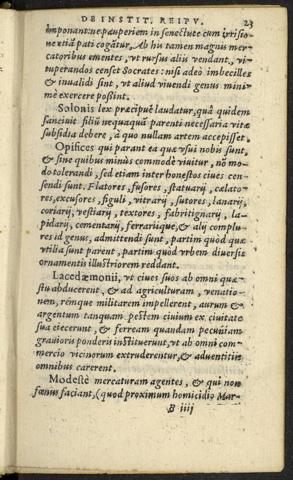 DE INSTIT. REIPV. 23
imponant: ne pauperiem in senectute cum irrisio-
ne etiã pati cogãtur. Ab hu tamen magnus mer-
catoribus ementes, vt rursus alijs vendant, vi-
tuperandos censet Socrates: nisi adeò imbecilles
& inualidi sint, vt aliud viuendi genus mini-
mè exercere possint.
Solonis lex præcipuè laudatur, quã quidem
sanciuit filiũ nequaquã parenti necessaria vitæ
subsidia debere, à quo nullam artem accepisset.
Opifices qui parant ea quæ vsui nobis sunt,
& sine quibus minùs commodè viuitur, nõ mo-
do tolerandi, sed etiam inter honestos ciues cen-
sendi sunt. Flatores, fusores, statuarij, cælato-
res, excusores, figuli, vitrarij, sutores, lanarij,
coriarij, vestiarij, textores, fabritignarij, la-
pidarij, cementarij, ferrarijque, & alij complu-
res id genus, admittendi sunt, partim quòd quæ
vtilia sunt parent, partim quòd vrbem diuersis
ornamentis illustriorem reddant.
Lacedæmonii, vt ciues suos ab omni quæ-
stu abducerent, & ad agriculturam, venatio-
nem, rémque militarem impellerent, aurum &
argentum tanquam pestem ciuium ex ciuitate
sua eiecerunt, & ferream quandam pecuniam
grauioris ponderis instituerunt, vt ab omni com-
mercio vicinorum extruderentur, & aduentitiis
omnibus carerent.
Modestè mercaturam agentes, & qui non
fœnus faciant, (quod proximum homicidio Mar-
B iiij